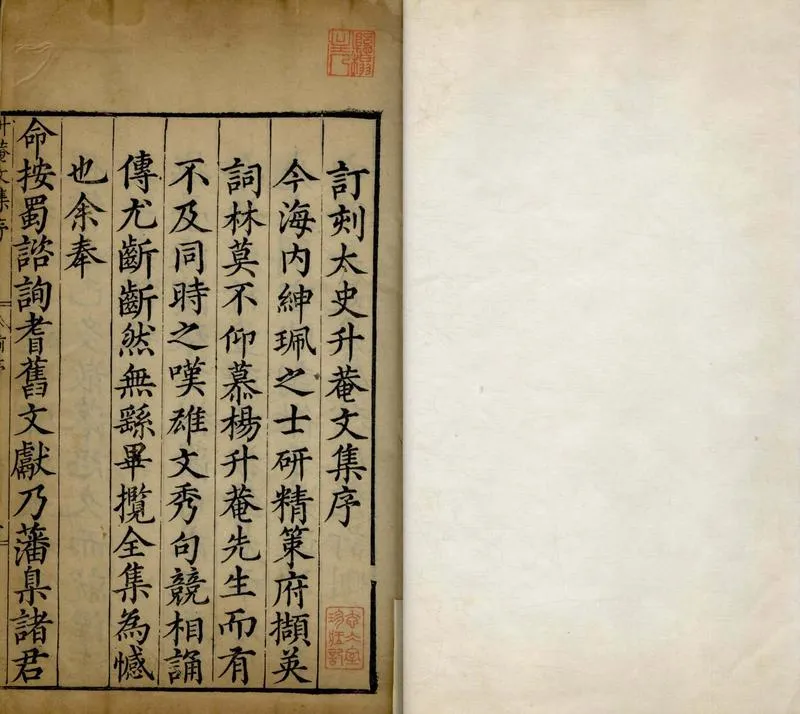 訂刻太史升菴文集序
今海内紳珮之士研精策府擷英
詞林莫不仰慕楊升菴先生而有
不及同時之嘆雄文秀句競相誦
傳尤齗齗然無繇畢攬全集為憾
也余奉
命按蜀諮詢耆舊文獻乃藩臬諸君
升菴文集序